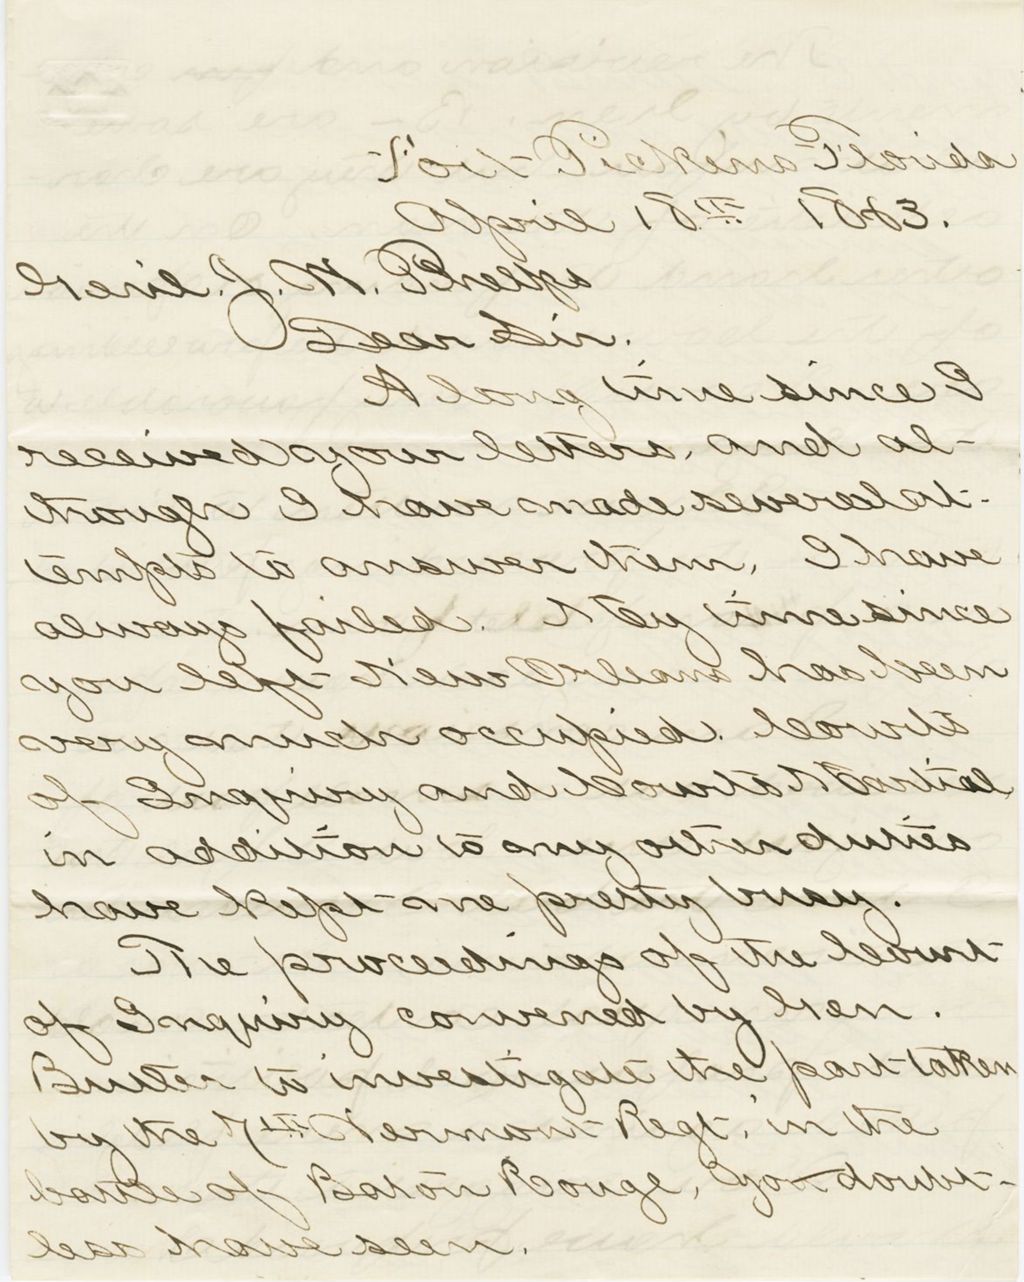 Fort Pickens Florida
April 18th 1863.
Genl. J. W. Phelps
Dear Sir.
A long time since I
received your letters, and al-
though I have made several at-
tempts to answer them, I have
always failed. My time since
you left New Orleans has been
very much occupied. Courts
of Inquiry and Courts Martial,
in addition to my other duties
have kept me pretty busy.
The proceedings of the Court
of Inquiry convened by Gen.
Butler to investigate the part taken
by the 7th Vermont Regt. in the
battle of Baton Rouge, you doubt-
less have seen.